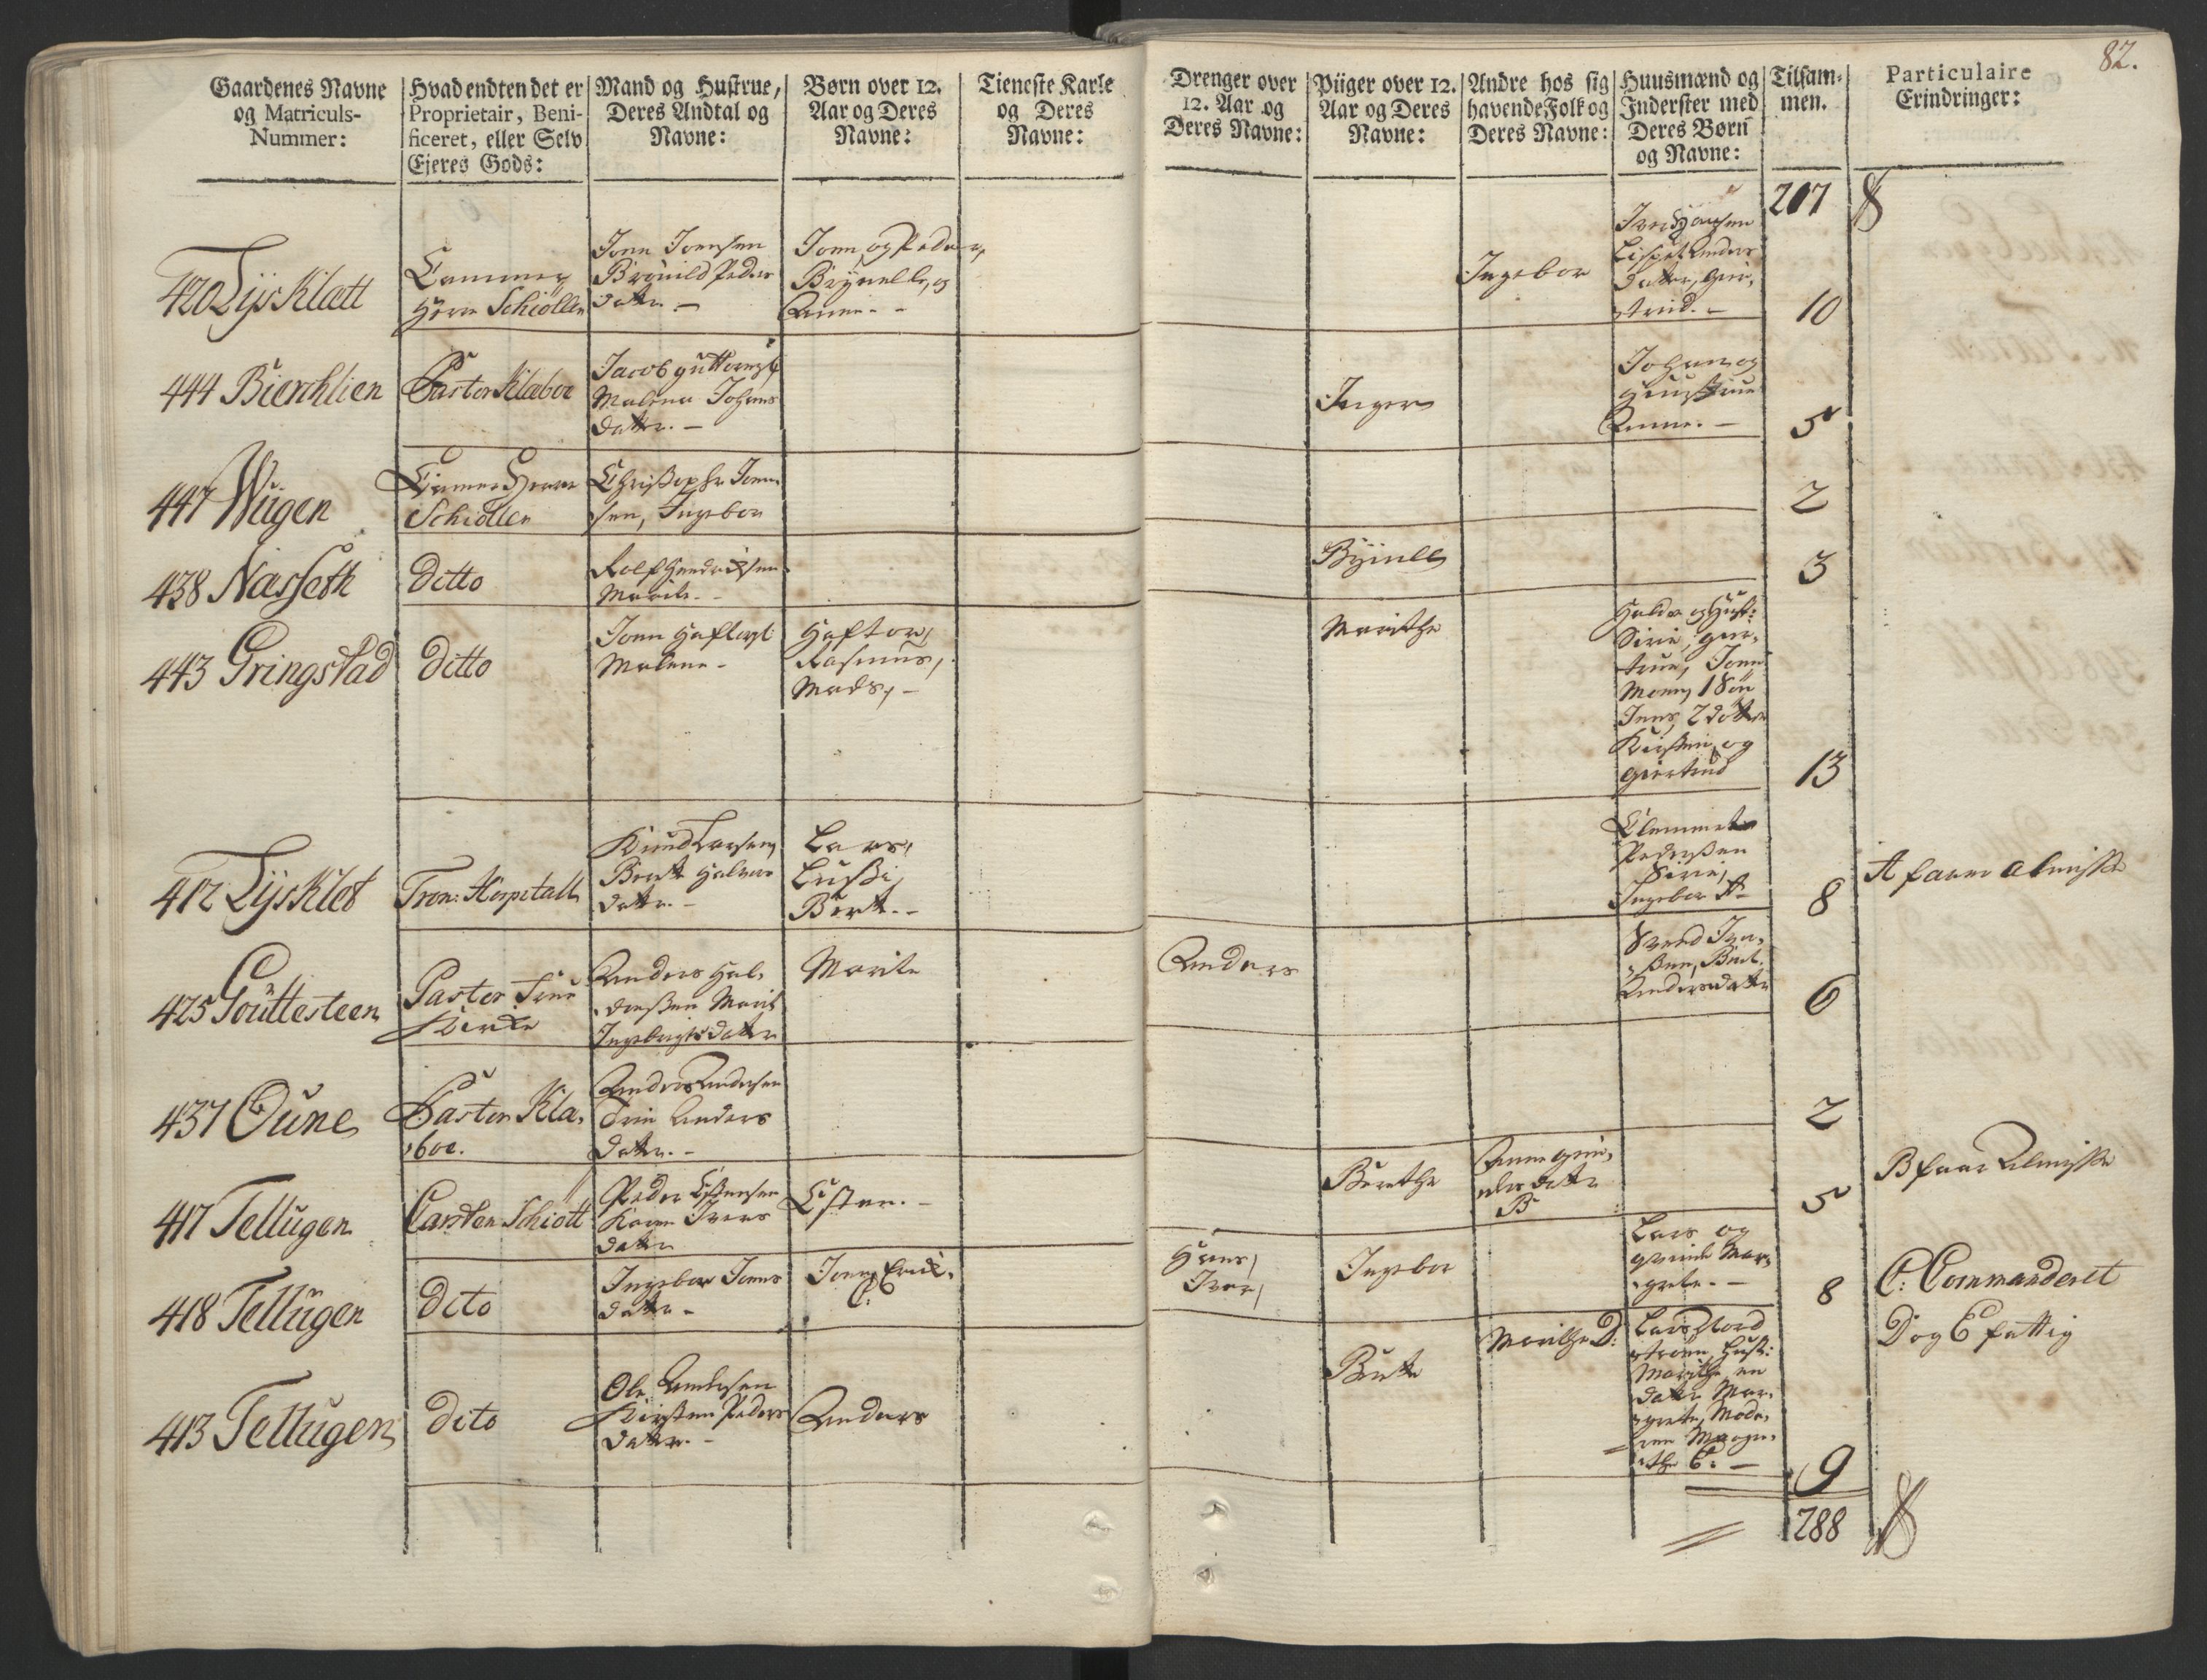 82.
Gaardenes Navne
og Matriculs-
Nummer:
Hvad endten det er
Proprietair, Beni-
ficeret, eller Selv
Ejeres Gods:
Mand og Hustrue,
Deres Andtal og
Navne:
Børn over 12.
Aar og Deres
Navne:
Tieneste Karle
og Deres
Navne:
Drenger over
12. Aar og
Deres Navne:
Piiger over 12.
Aar og Deres
Navne:
Andre hos sig
havende Folk og
Deres Navne:
Huusmænd og
Inderster med
Deres Børn
og Navne:
Tilsam-
men.
Particulaire
Erindringer:
207
420 Lÿsklætt
Cammer
Herre Schiöller
Jonn Joensen
Brÿnild Peders
datter. -
Jonn, og Peder,
Brÿnelle, og
Anne. -
Ingebor
Iver Hansen
Lisbet Anders
datter, Gier,
trud. -
10
444 Bierchlien
Pastor Klæboe
Jacob Guttormsen
Malena Johans
datter. -
Inger
Johan og
Hustrue
Anne. -
5
447 Wügen
Cammer Herre
Schiöller
Christopher Jonn-
sen, Ingebor
2
438 Næsseth
Ditto
Rolf Hendrichsen
Marite. -
Bÿnill
3
443 Gringstad
Ditto
Jonn Haftors:
Malene -
Haftor,
Rasmus,
Mads, -
Marithe
Haldo og Hust:
Siri, Gier,
true, Jonn
Mons, 1 Søn
Jens, 2 døttre
Kirsten, og
Giertrud
13
412 Lÿsklet
Tron: Hospitall
Knud Larsen,
Berit Halvors
datter. -
Lars,
Lussi,
Berit. -
Clemmet
Pedersen
Siri,
Ingebor A -
8
A faaer almisse
425 Gouttesteen
Pastor Frue
Kirke
Anders Hal-
dorsen Marit
Ingebrigtsdatter
Marite
Anders
Svend Iver-
sen, Berit
Andersdatter
6
437 Oune
Pastor Klæ-
boe.
Anders Andersen
Siri Anders
datter. -
2
417 Tellugen
Carsten Schiött
Peder Estensen
Karen Ivers
datter
Esten. -
Berethe
B
5
B faar Almisse
418 Tellugen
Dito
Ingebor Jonns
datter -
Jonn, Erik,
C:
Hans,
Iver,
Ingebor
Lars og
qvinde Mar-
grete. -
8
C. Commanderet
413 Tellugen
Dito
Ole Andersen
Kirsten Peders
datter. -
Anders
Berte
Marithe D:
Lars Nord
strøm, Hust:
Marithe, en
datter Mar-
grete, Mode-
ren Margre-
the E: -
9
D og E fattig
288